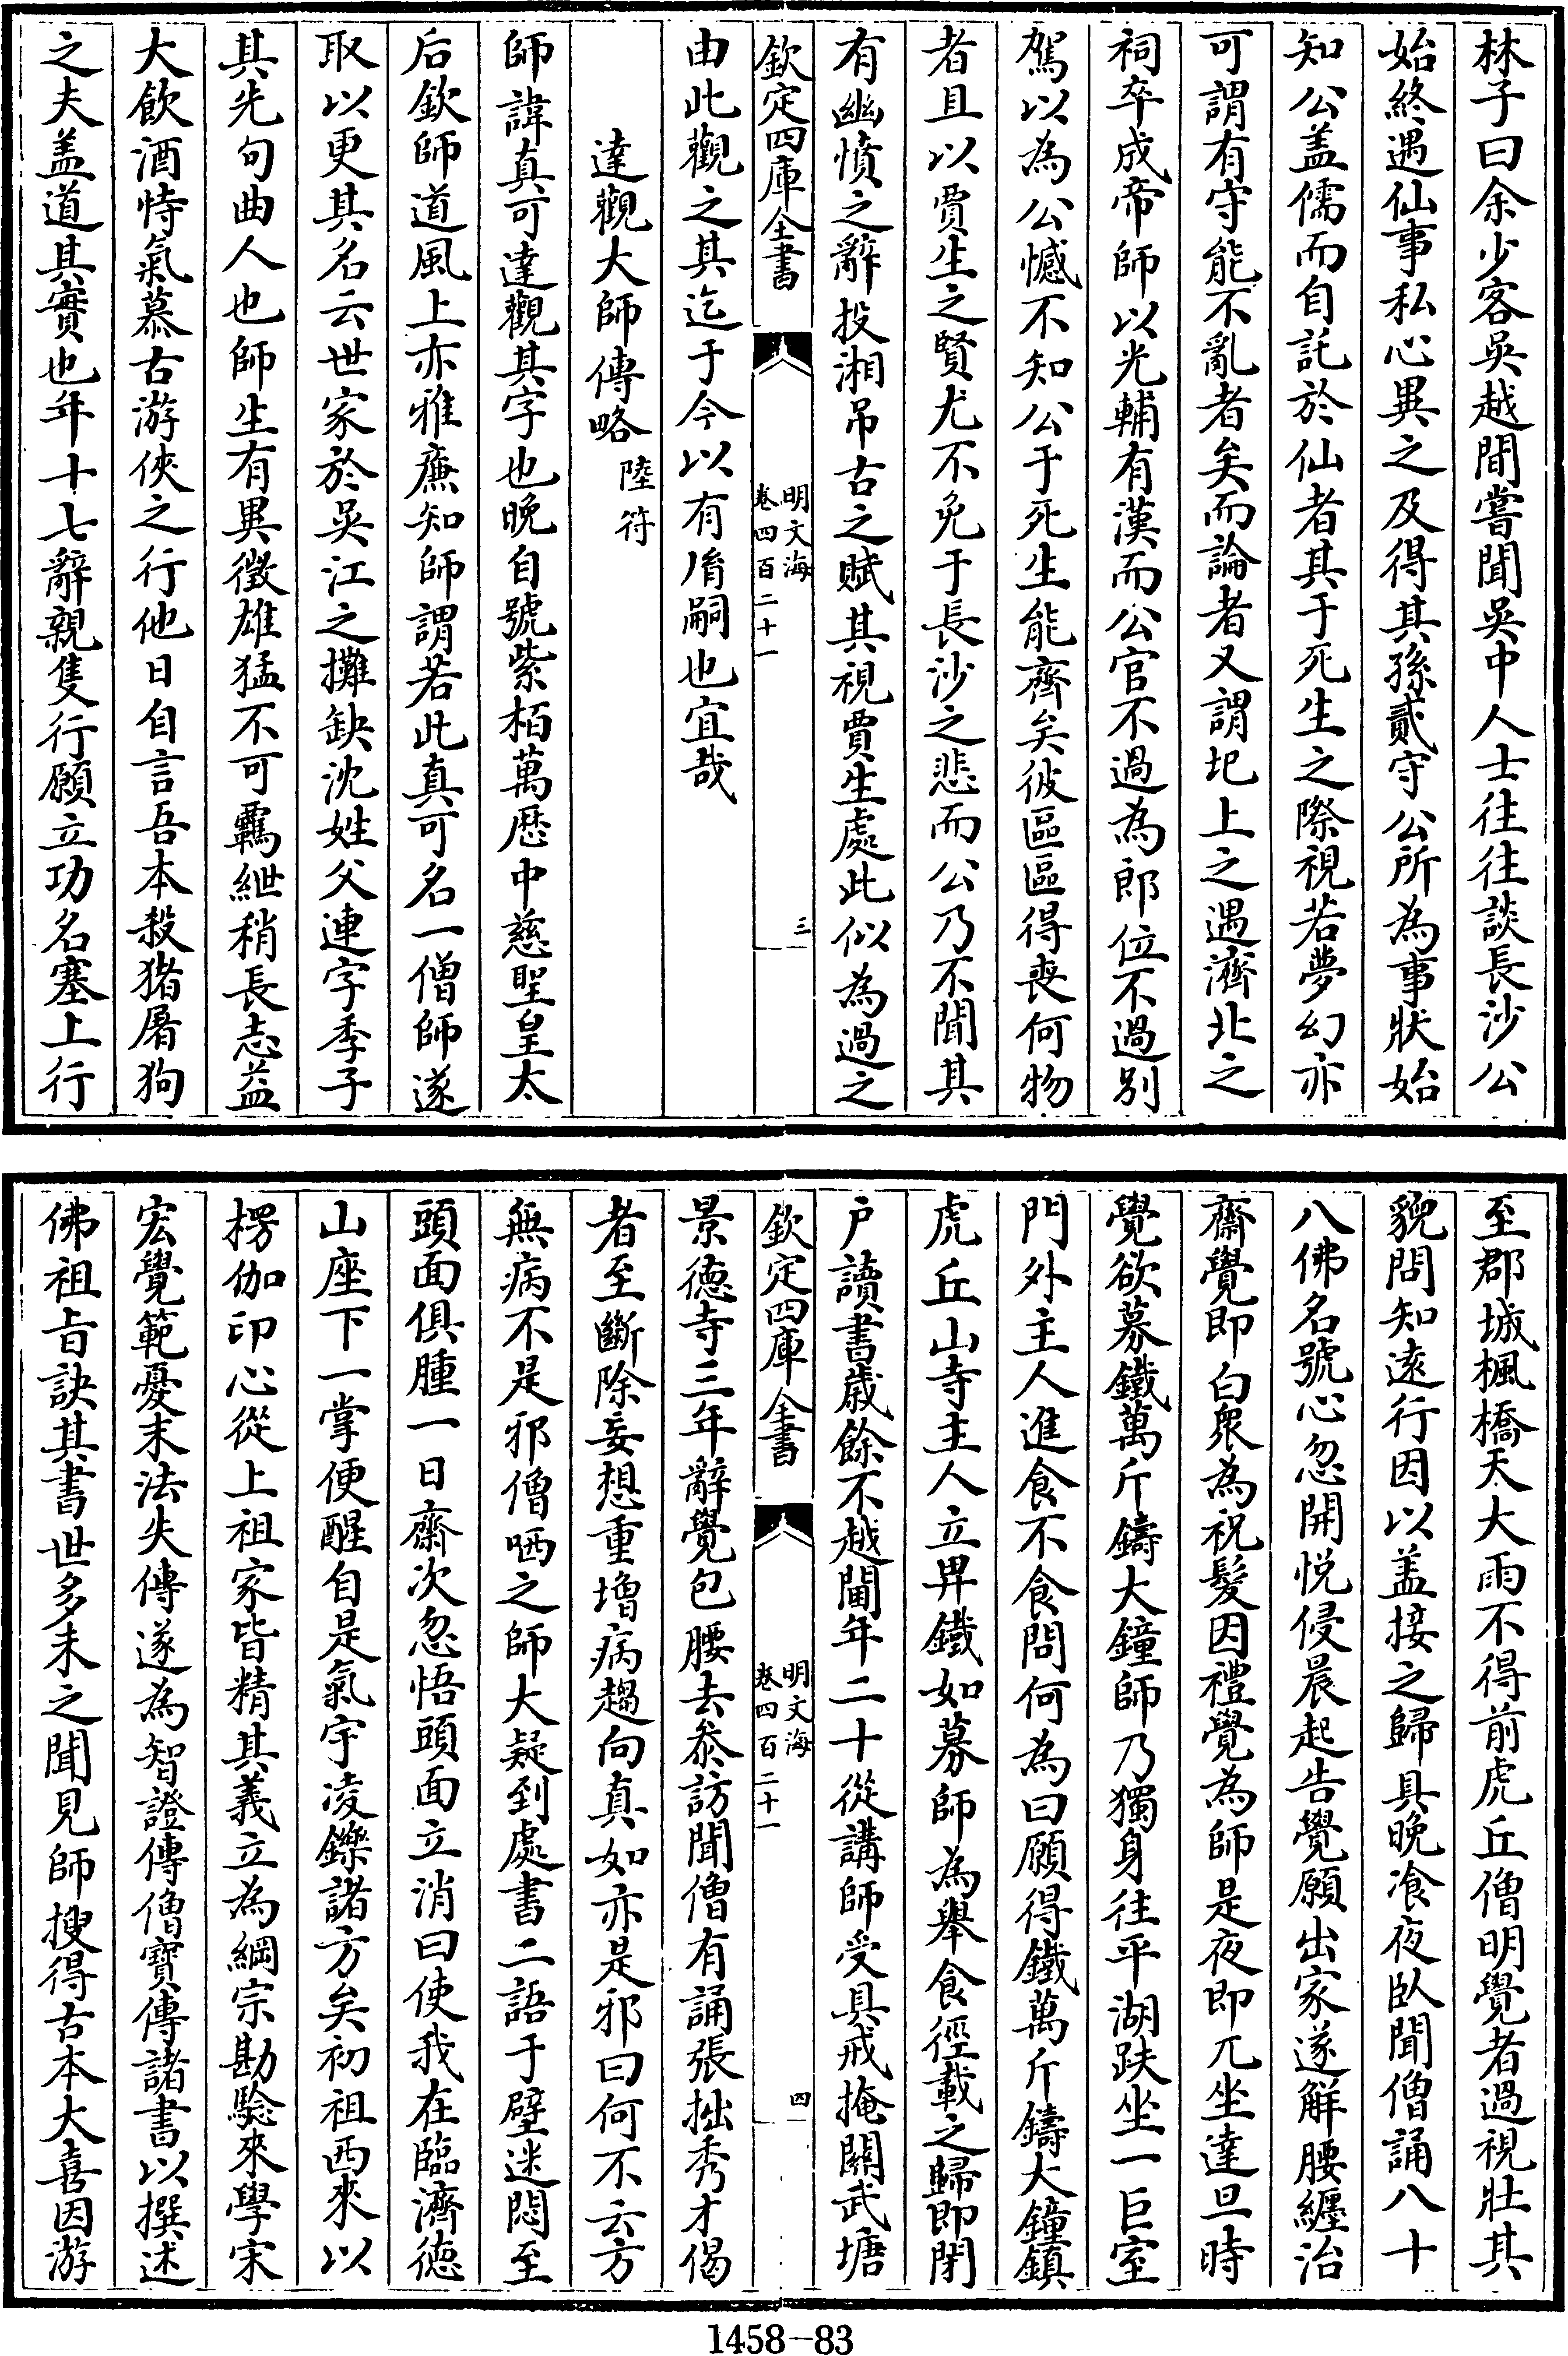 林子曰余少客吳越間嘗聞吳中人士往往談長沙公
始終遇仙事私心異之及得其孫貳守公所為事狀始
知公盖儒而自託於仙者其于死生之際視若夢幻亦
可謂有守能不亂者矣而論者又謂圯上之遇濟北之
祠卒成帝師以光輔有漢而公官不過為郎位不過別
駕以為公憾不知公于死生能齊矣彼區區得喪何物
者且以賈生之賢尤不免于長沙之悲而公乃不聞其
有幽憤之辭投湘吊古之賦其視賈生處此似為過之
欽定四庫全書
明文海
卷四百二十一
三
由此觀之其迄于今以有胤嗣也宜哉
達觀大師傳略 陸符
師諱真可達觀其字也晚自號紫栢萬厯中慈聖皇太
后欽師道風上亦雅㢘知師謂若此真可名一僧師遂
取以更其名云世家於吳江之攤缺沈姓父連字季子
其先句曲人也師生有異徵雄猛不可羈紲稍長志益
大飲酒恃氣慕古游俠之行他日自言吾本殺猪屠狗
之夫盖道其實也年十七辭親隻行願立功名塞上行
至郡城楓橋天大雨不得前虎丘僧明覺者過視壯其
貌問知遠行因以盖接之歸具晚飡夜臥聞僧誦八十
八佛名號心忽開悅侵晨起告覺願出家遂解腰纏治
齋覺即白衆為祝髮因禮覺為師是夜即兀坐達旦時
覺欲募鐵萬斤鑄大鐘師乃獨身往平湖趺坐一巨室
門外主人進食不食問何為曰願得鐵萬斤鑄大鐘鎮
虎丘山寺主人立舁鐵如募師為舉食徑載之歸即閉
户讀書歲餘不越閫年二十從講師受具戒掩關武塘
欽定四庫全書
明文海
卷四百二十一
四
景徳寺三年辭覺包腰去叅訪聞僧有誦張拙秀才偈
者至斷除妄想重增病趨向真如亦是邪曰何不云方
無病不是邪僧哂之師大疑到處書二語于壁迷悶至
頭面俱腫一日齋次忽悟頭面立消曰使我在臨濟徳
山座下一掌便醒自是氣宇凌鑠諸方矣初祖西來以
楞伽印心從上祖家皆精其義立為綱宗勘驗來學宋
宏覺範憂末法失傳遂為智證傳僧寶傳諸書以撰述
佛祖㫖訣其書世多未之聞見師搜得古本大喜因游
1458-83